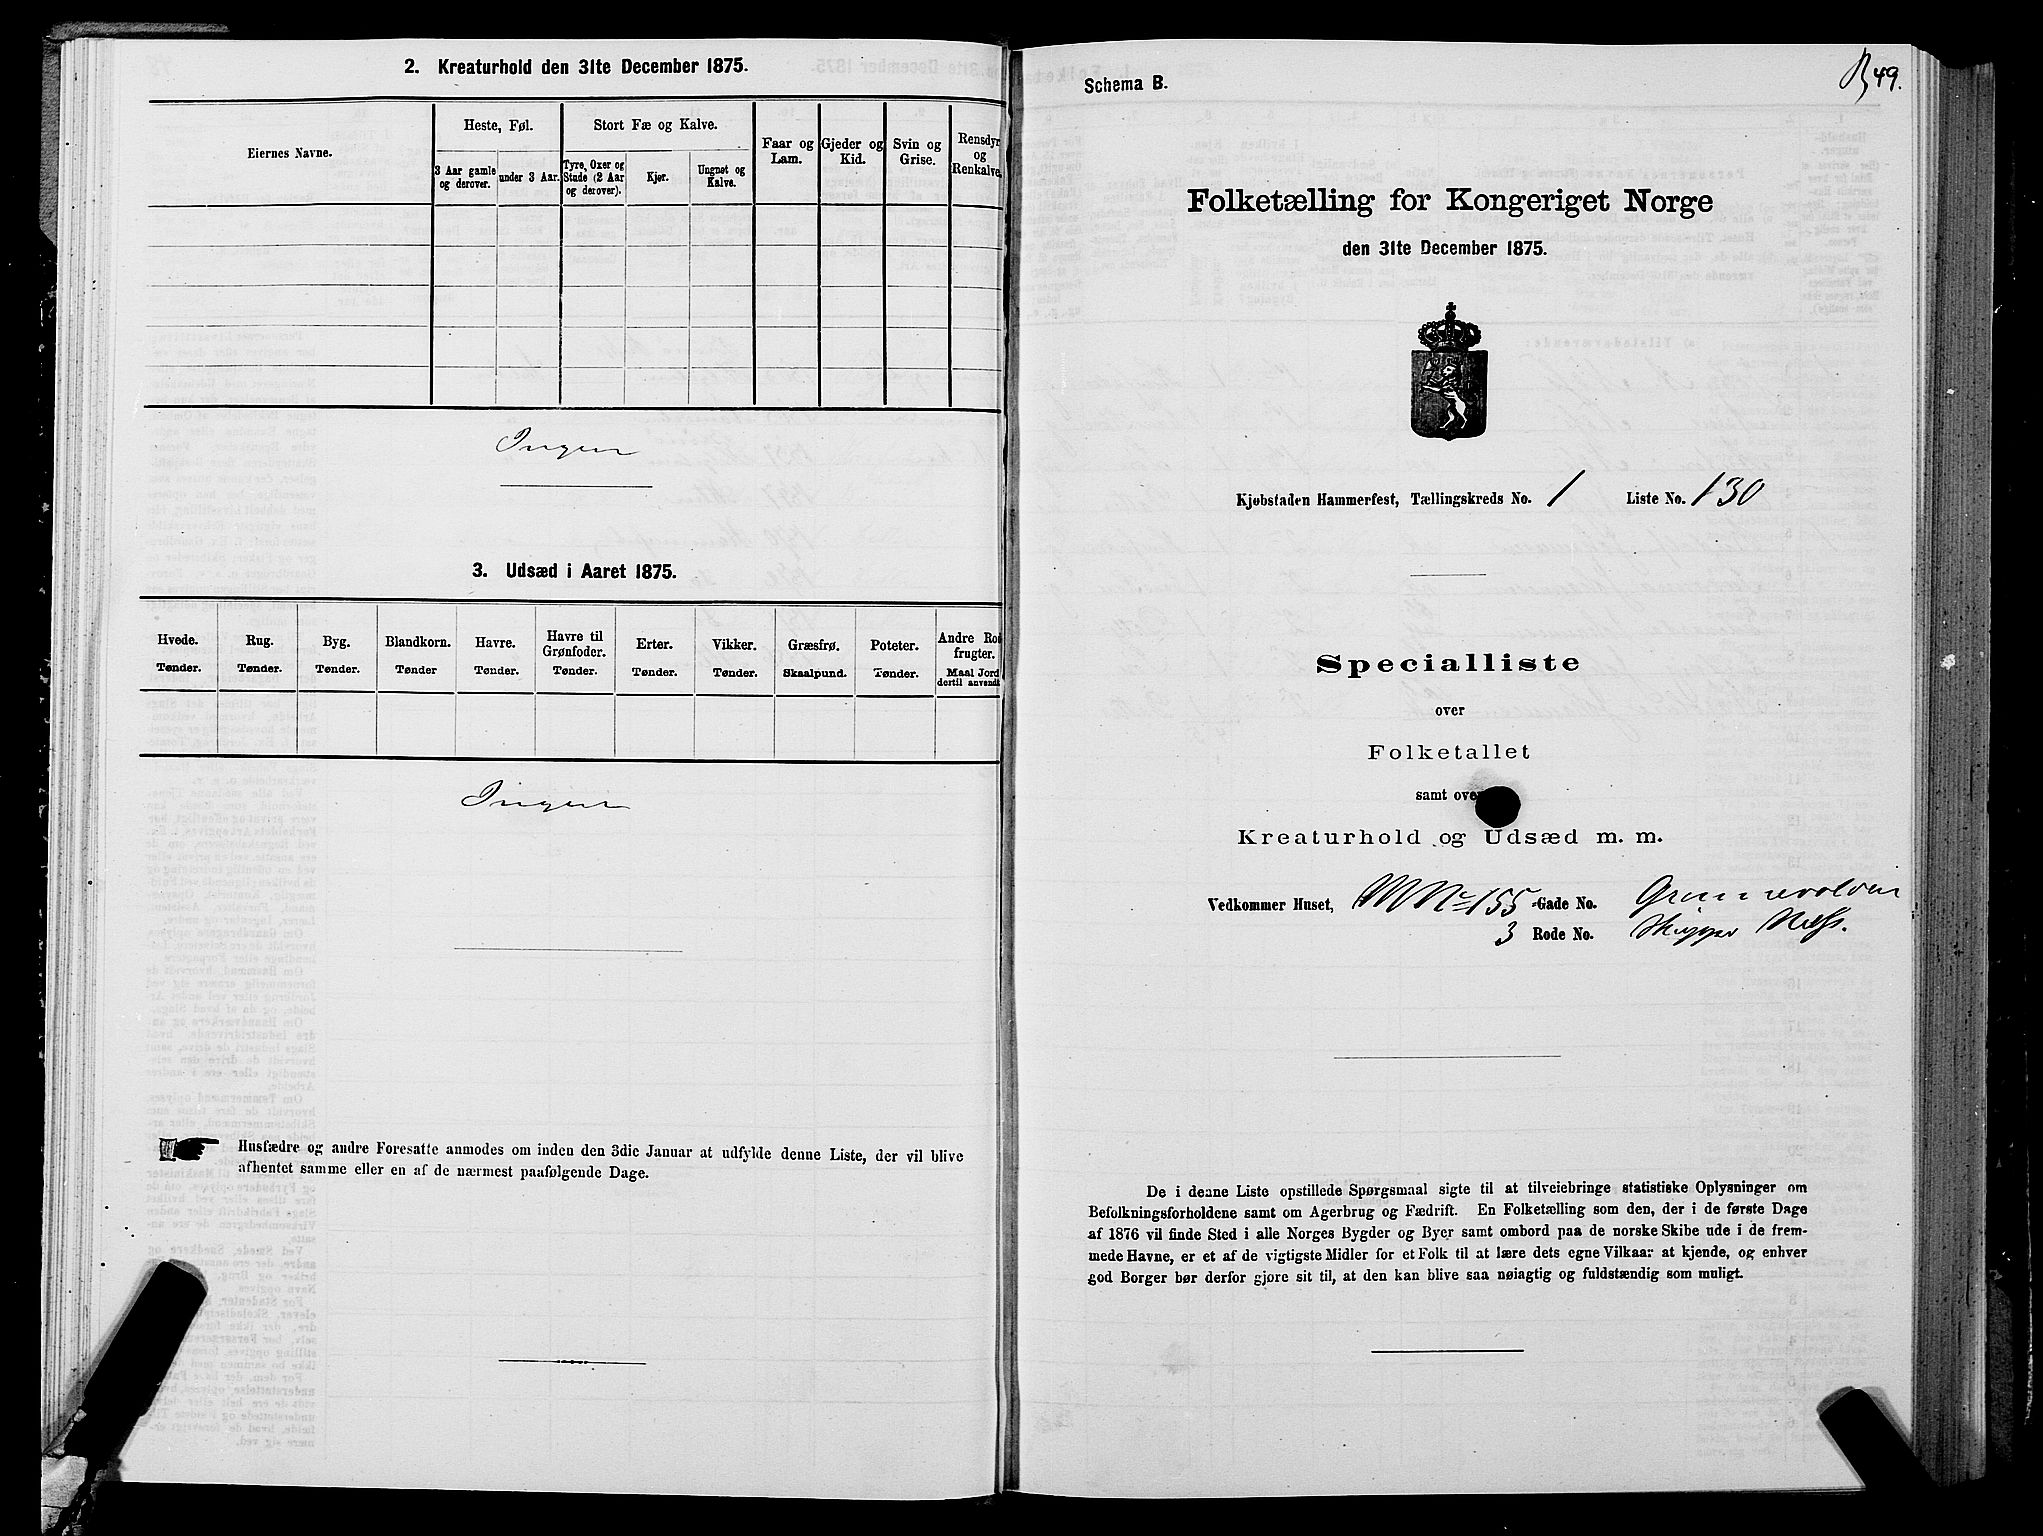 2. Kreaturhold den 31te December 1875.
Eiernes Navne.
Heste, Føl.
Stort Fæ og Kalve.
Faar og Lam.
Gjeder og Kid.
Svin og Grise.
Rensdyr og Renkalve.
3 Aar gamle og derover.
under 3 Aar.
Tyre, Oxer og Stude (2 Aar og derover).
Kjør.
Ungnøt og Kalve.
Ingen
3. Udsæd i Aaret 1875.
Hvede. Tønder.
Rug. Tønder.
Byg. Tønder.
Blandkorn. Tønder
Havre. Tønder.
Havre til Grønfoder. Tønder.
Erter. Tønder.
Vikker. Tønder.
Græsfrø. Skaalpund.
Poteter. Tønder.
Andre Rod frugter. Maal Jord dertil anvendt
Ingen
Husfædre og andre Foresatte anmodes om inden den 3die Januar at udfylde denne Liste, der vil blive
afhentet samme eller en af de nærmest paafølgende Dage.
Schema B.
49.
Folketælling for Kongeriget Norge
den 31te December 1875.
Kjøbstaden Hammerfest, Tællingskreds No. 1 Liste No. 130
Specialliste
over
Folketallet
samt over
Kreaturhold og Udsæd m. m.
Vedkommer Huset, MNo 155 Gade No. Grønnevolden
3 Rode No. Skipper Næss.
De i denne Liste opstillede Spørgsmaal sigte til at tilveiebringe statistiske Oplysninger om
Befolkningsforholdene samt om Agerbrug og Fædrift. En Folketælling som den, der i de første Dage
af 1876 vil finde Sted i alle Norges Bygder og Byer samt ombord paa de norske Skibe ude i de frem-
mede Havne, er et af de vigtigste Midler for et Folk til at lære dets egne Vilkaar at kjende, og enhver
god Borger bør derfor gjøre sit til, at den kan blive saa nøiagtig og fuldstændig som muligt.